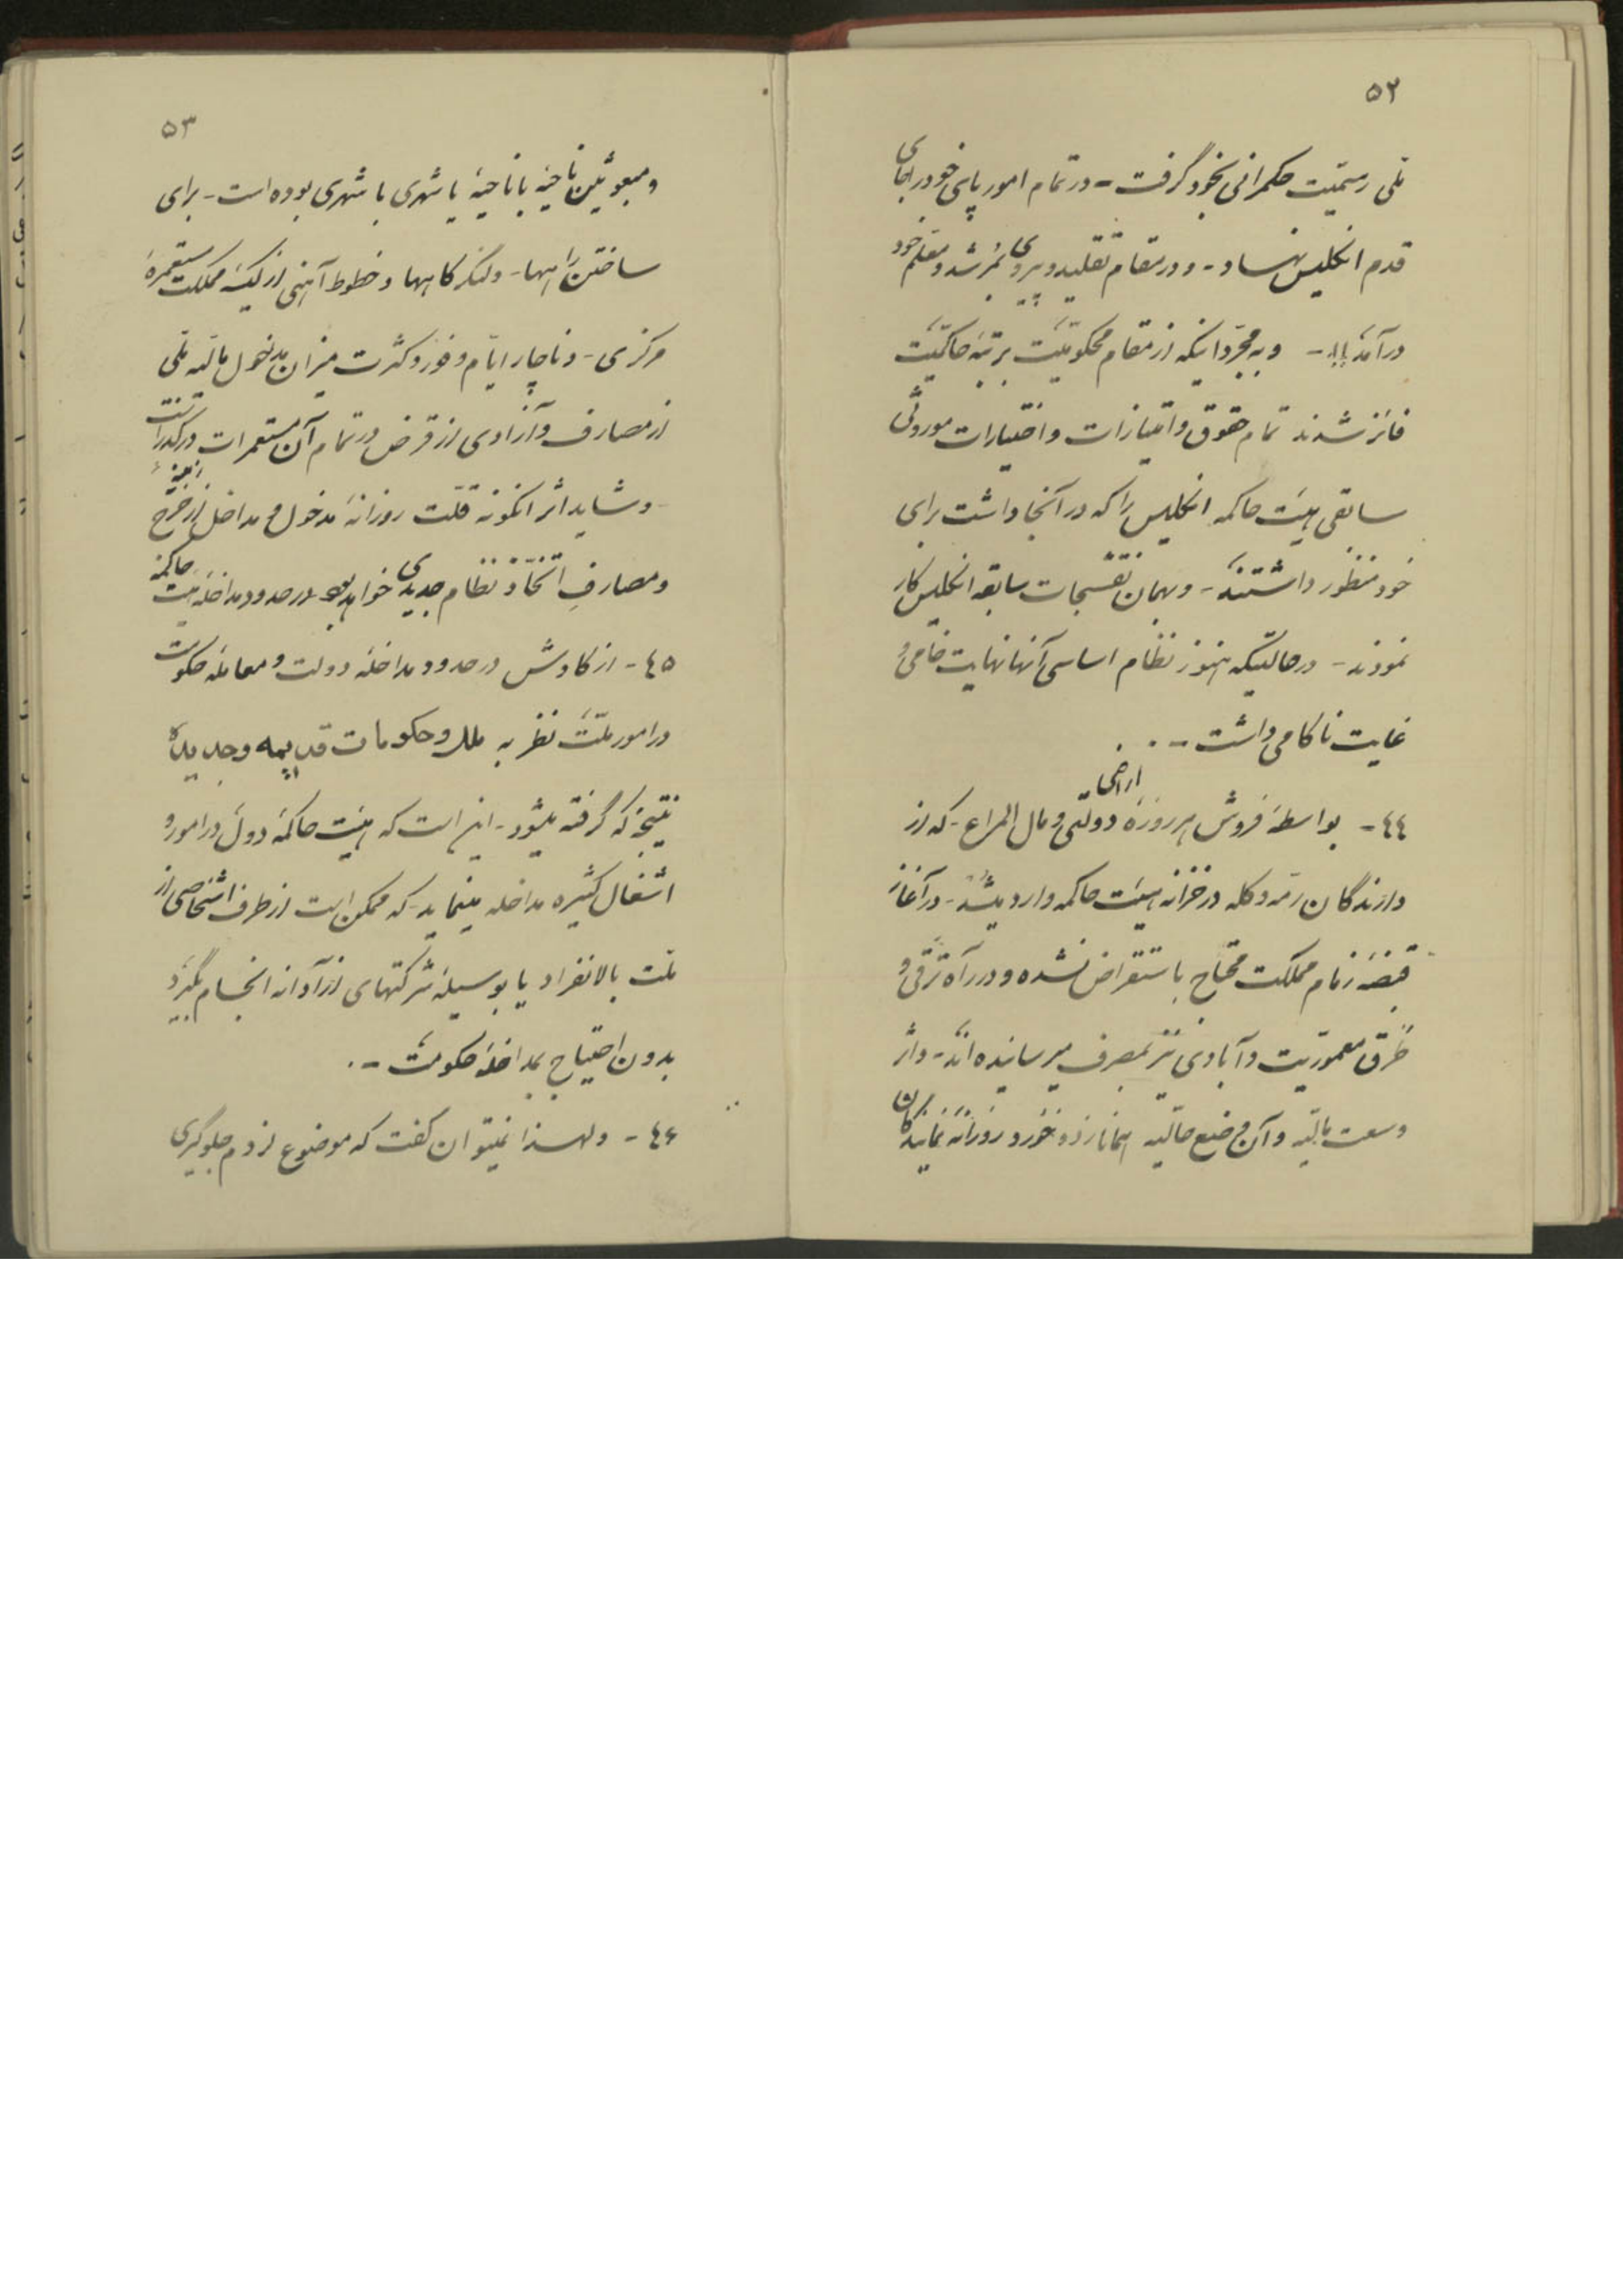 ۵۲
ملی رسمیّت حکمرانی بخود گرفت - در تمام امور پای خود را بجای
قدم انگلیس نهاد - و در مقام تقلید و پیروی مرشد و معلم خود
درآمد !! - و به مجرّد اینکه از مقام محکومیّت برتبهٔ حاکمیّت
فائز شدند تمام حقوق و امتیازات و اختیارات موروثی
سابقی هیئت حاکمه انگلیس را که در آنجا داشت برای
خود منظور داشتند - و بهمان سابقه انگلیس کار
نمودند - در حالتیکه هنوز نظام اساسی آنها نهایت خامی و
غایت ناکامی داشت -
٤٤ - بواسطهٔ فروش هر روزهٔ اراضی دولتی و مال المراع - که از
دارندگان رمه و گله در خزانه هیئت حاکمه وارد میشد - در آغاز
قبضهٔ زمام مملکت محتاج باستقراض نشده و در راه ترقی و
طرق معموریّت و آبادی نیز بمصرف میرسانیده اند - و اثر
وسعت مالیّه و آن وضع حالیه همانا زد و خورد روزانه نمایندگان
۵۳
و مبعوثین ناحیهٔ با ناحیهٔ یا شهری با شهری بوده است - برای
ساختن راهها - و لنگرگاهها و خطوط آهنی از یک مملکت مستعمرهٔ
مرکزی - و ناچار ایّام وفور و کثرت میزان مدخول مالیّه ملی
از مصارف و آزادی از قرض در تمام آن مستعمرات در گذر است
- و شاید اثر اینگونه قلّت روزانهٔ مدخول و مداخل از خرج
و مصارفِ اتخاذ نظام جدیدی خواهد بود در حدود مداخلهٔ هیئت حاکمه
٤۵ - از کاوش در حدود مداخلهٔ دولت و معاملهٔ حکومت
در امور ملّت نظر به ملل و حکومات قدیمه و جدیده
نتیجهٔ که گرفته میشود - این است که هیئت حاکمهٔ دول در امور و
اشغال کثیره مداخله مینماید - که ممکن است از طرف اشخاصی از
ملّت بالانفراد یا بوسیلهٔ شرکتهای آزادانه انجام بگیرد
بدون احتیاج بمداخلهٔ حکومت -
٤۶ - و لهذا نمیتوان گفت که موضوع لزوم جلوگیری